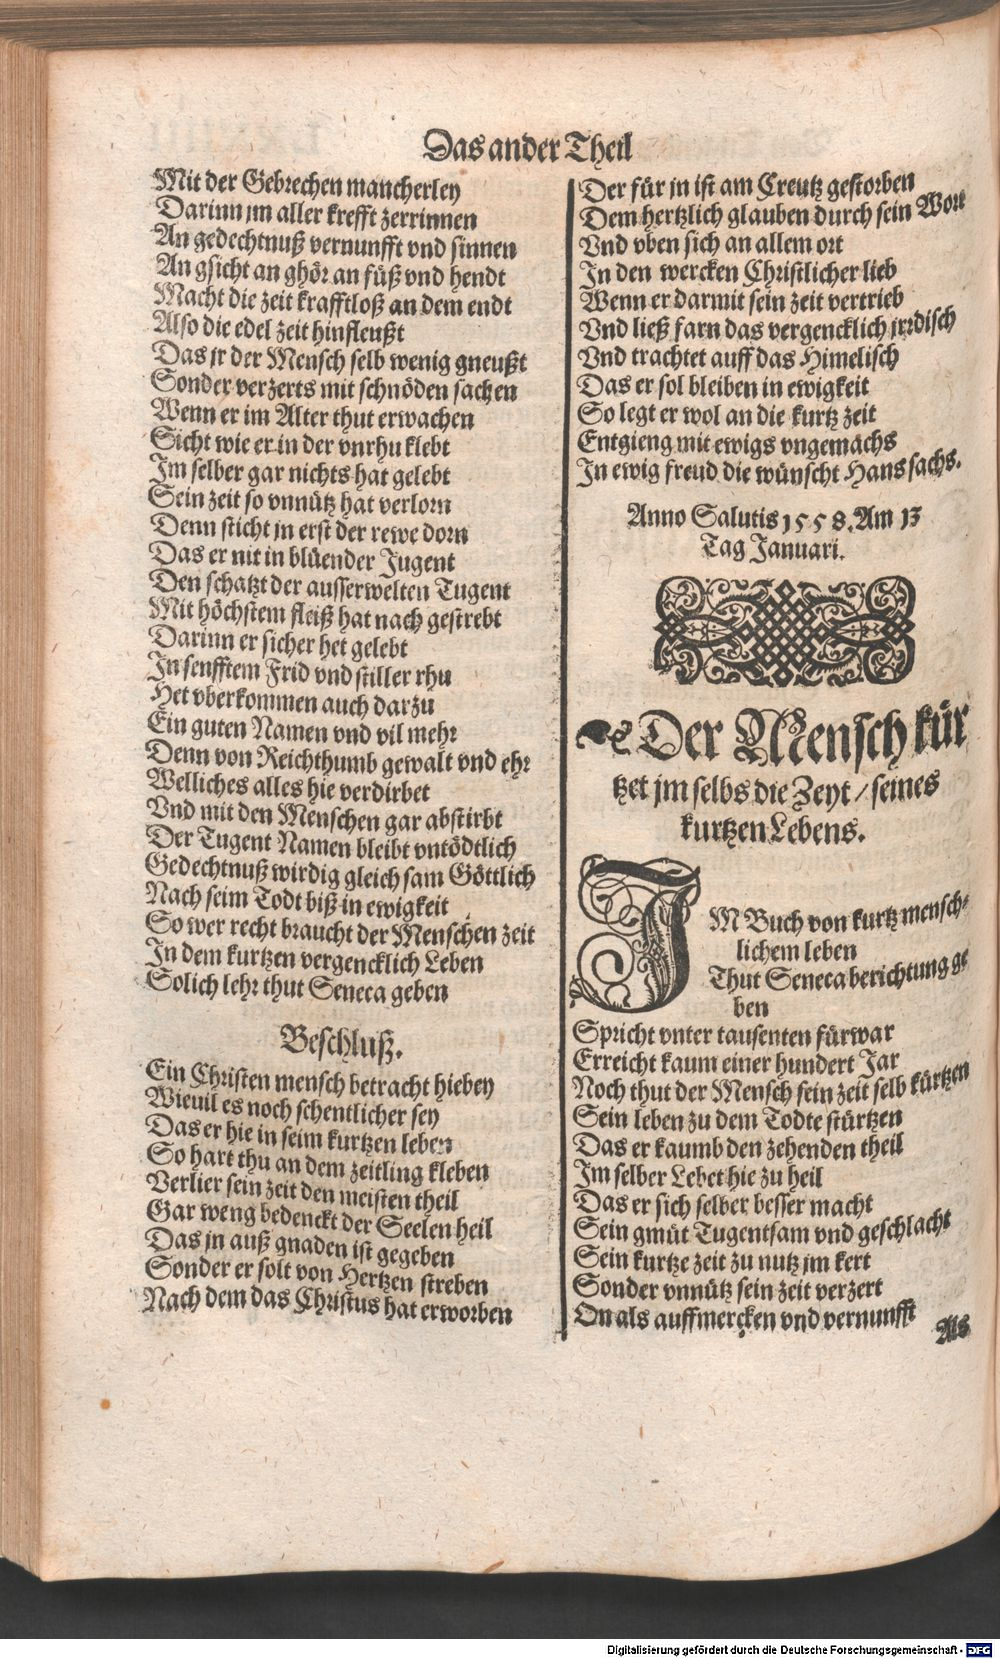 Das ander Theil
Mit der Gebrechen mancherley
Darinn jm aller krefft zerrinnen
An gedechtnuß vernunfft vnd sinnen
An gsicht an ghör an füß vnd hendt
Macht die zeit krafftloß an dem endt
Also die edel zeit hinfleußt
Das jr der Mensch selb wenig gneußt
Sonder verzerts mit schnöden sachen
Wenn er im Alter thut erwachen
Sicht wie er in der vnrhu klebt
Im selber gar nichts hat gelebt
Sein zeit so vnnütz hat verlorn
Denn sticht jn erst der rewe dorn
Das er nit in blüender Jugent
Den schatzt der ausserwelten Tugent
Mit höchstem fleiß hat nach gestrebt
Darinn er sicher het gelebt
In senfftem Frid vnd stiller rhu
Het vberkommen auch darzu
Ein guten Namen vnd vil mehr
Denn von Reichthumb gewalt vnd ehr
Welliches alles hie verdirbet
Vnd mit den Menschen gar abstirbt
Der Tugent Namen bleibt vntödtlich
Gedechtnuß wirdig gleich sam Göttlich
Nach seim Todt biß in ewigkeit
So wer recht braucht der Menschen zeit
In dem kurtzen vergencklich Leben
Solich lehr thut Seneca geben
Beschluß.
Ein Christen mensch betracht hiebey
Wieuil es noch schentlicher sey
Das er hie in seim kurtzen leben
So hart thu an dem zeitling kleben
Verlier sein zeit den meisten theil
Gar weng bedenckt der Seelen heil
Das jn auß gnaden ist gegeben
Sonder er solt von Hertzen streben
Nach dem das Christus hat erworben
Der für jn ist am Creutz gestorben
Dem hertzlich glauben durch sein Wort
Vnd vben sich an allem ort
In den wercken Christlicher lieb
Wenn er darmit sein zeit vertrieb
Vnd ließ farn das vergencklich jrrdisch
Vnd trachtet auff das Himelisch
Das er sol bleiben in ewigkeit
So legt er wol an die kurtz zeit
Entgieng mit ewigs vngemachs
In ewig freud die wünscht Hans sachs.
Anno Salutis 1558. Am 13
Tag Januari.
Der Mensch kür
tzet jm selbs die Zeyt / seines
kurtzen Lebens.
IM Buch von kurtz mensch-
lichem leben
Thut Seneca berichtung ge
ben
Spricht vnter tausenten fürwar
Erreicht kaum einer hundert Jar
Noch thut der Mensch sein zeit selb kürtzen
Sein leben zu dem Todte stürtzen
Das er kaumb den zehenden theil
Im selber Lebet hie zu heil
Das er sich selber besser macht
Sein gmüt Tugentsam vnd geschlacht
Sein kurtze zeit zu nutz jm kert
Sonder vnnütz sein zeit verzert
On als auffmercken vnd vernunfft
Als
Digitalisierung gefördert durch die Deutsche Forschungsgemeinschaft - DFG